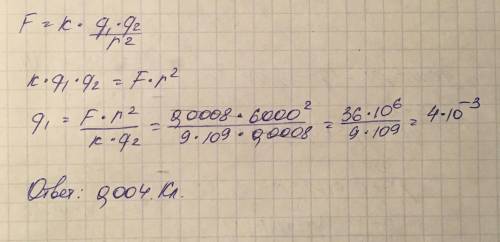 F = k · q₁·q₂/r²
k·q₁·q₂ = F·r²
q₁ = F·r²/k·q₂ = 0,0008·6000²/9·109·0,0008 = 36·10⁶/9·109 = 4·10⁻³
Ответ: 0,004 Кл.